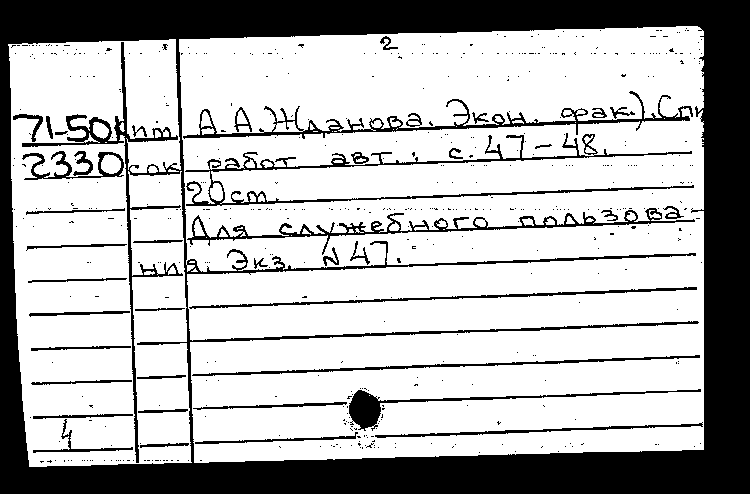 2
71-50к пт. А. А. Жданова. Экон. фак.). Спи
2330 сок работ авт.: с. 47-48.
20 см.
Для служебного пользова-
ния. Экз. № 47.
4